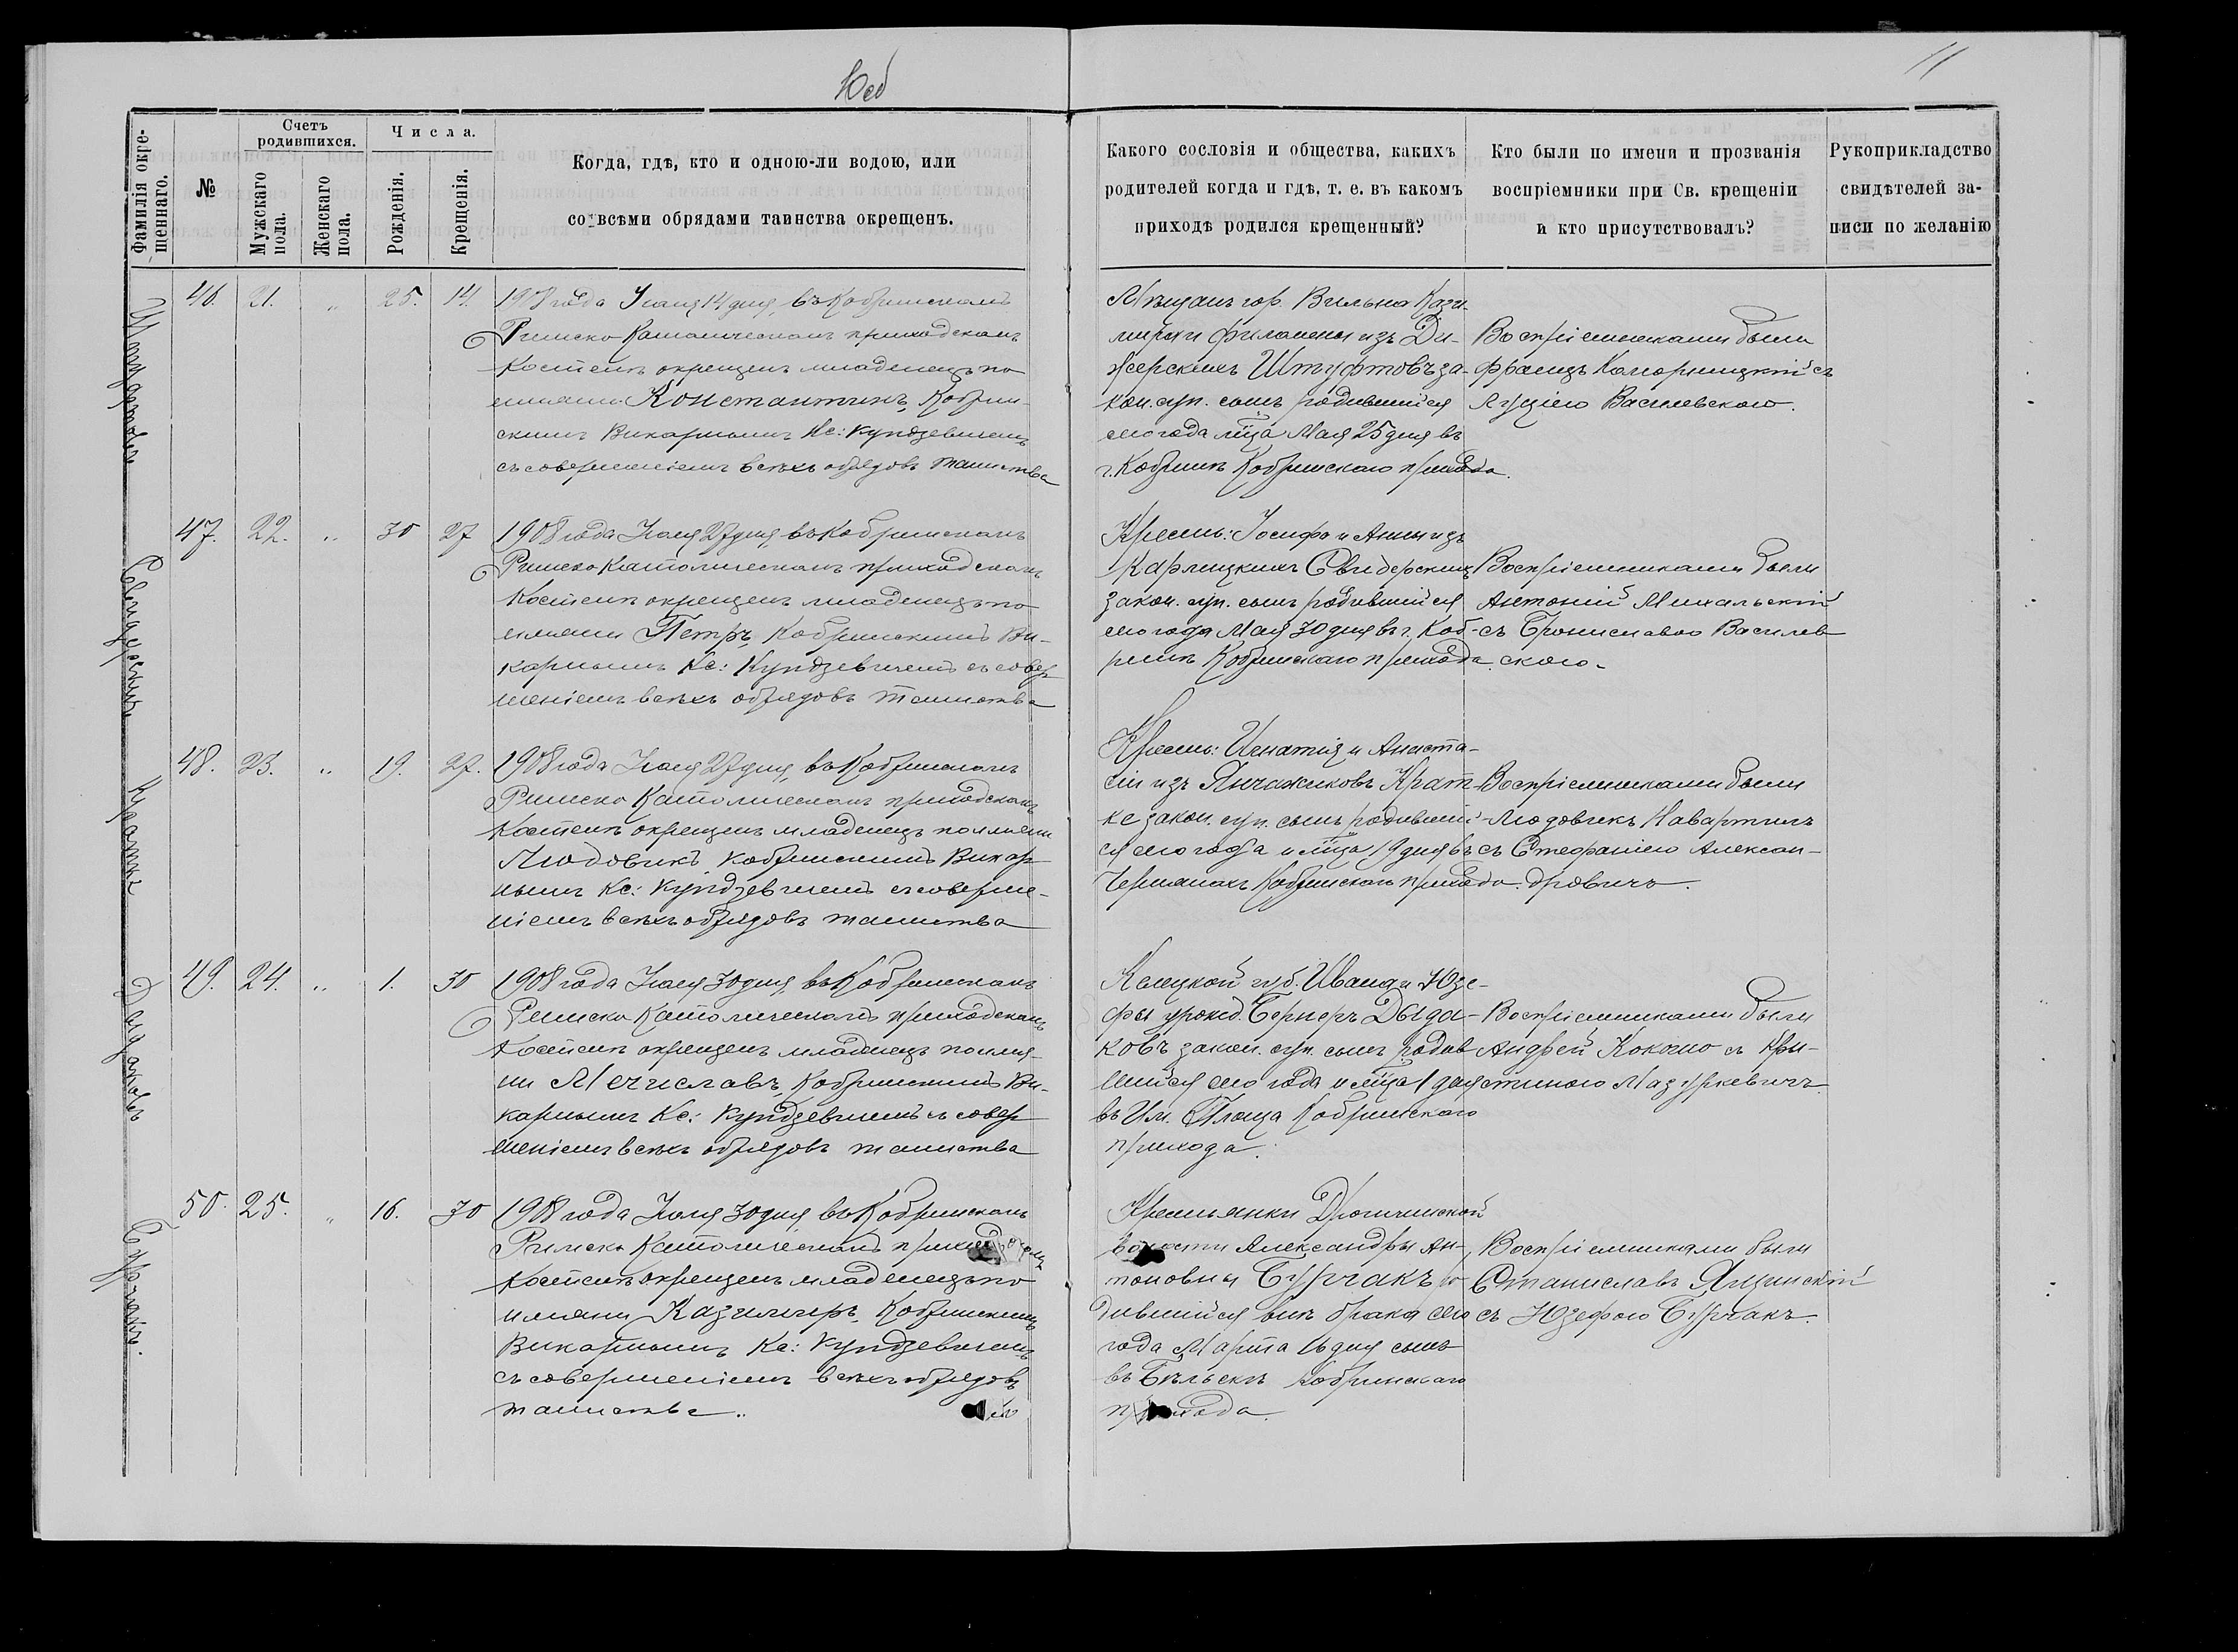 10об
11
Фамилія окре-
щеннаго.
№
Счетъ
родившихся.
Мужскаго
пола.
Женскаго
пола.
Числа.
Рожденія.
Крещенія.
Когда, гдѣ, кто и одною-ли водою, или
со всѣми обрядами таинства окрещенъ.
Какого сословія и общества, какихъ
родителей когда и гдѣ, т. е. въ какомъ
приходѣ родился крещенный?
Кто были по имени и прозванія
воспріемники при Св. крещеніи
и кто присутствовалъ?
Рукоприкладство
свидѣтелей за-
писи по желанію
46. 21. „ 25. 14.
1908 года Іюля 14 дня, въ Кобринскомъ
Римско Католическомъ приходскомъ
Костелѣ окрещенъ младенецъ по
имени Константинъ, Кобрин-
скимъ Викарнымъ Кс: Кундзевичемъ
съ совершеніемъ всѣхъ обрядовъ таинства
Мѣщанъ гор. Вильна Кази-
мира и Филомены изъ Ди-
жерскихъ Штуфтовъ за-
кон. суп. сынъ родившійся
сего года Мая 25 дня въ
г. Кобринѣ Кобринскаго прихода.
Воспріемниками были
Францъ Коморницкій съ
Луціею Василевскою.
Свидерскій
47. 22. „ 30 27
1908 года Іюля 27 дня, въ Кобринскомъ
Римско Католическомъ приходскомъ
Костелѣ окрещенъ младенецъ по
имени Петръ, Кобринскимъ Ви-
карнымъ Кс: Кундзевичемъ съ совер-
шеніемъ всѣхъ обрядовъ таинства
Кресть: Іосифа и Анны изъ
Карлицкихъ Свидерскихъ
закон. суп. сынъ родившійся
сего года Мая 30 дня въ г. Коб-
ринѣ Кобринскаго прихода.
Воспріемниками были
Антоній Михальскій
съ Брониславою Василев
скою.
Кратке
48. 23. „ 19. 27.
1908 года Іюля 27 дня, въ Кобринскомъ
Римско Католическомъ приходскомъ
Костелѣ окрещенъ младенецъ по имени
Людовикъ, Кобринскимъ Викар-
нымъ Кс: Кундзевичемъ съ соверше-
ніемъ всѣхъ обрядовъ таинства
Кресть: Игнатія и Анаста-
сіи изъ Янчажиковъ Крат-
ке закон. суп. сынъ родившій-
ся сего года и м̃ца 19 дня въ
Черянахъ Кобринскаго прихода.
Воспріемниками были
Людовикъ Навартичъ
съ Стефаніею Алексан-
дровичъ.
Дыдаковъ
49. 24. „ 1. 30
1908 года Іюля 30 дня, въ Кобринскомъ
Римско Католическомъ приходскомъ
Костелѣ окрещенъ младенецъ по име-
ни Мечиславъ, Кобринскимъ Ви-
карнымъ Кс: Кундзевичемъ съ совер
шеніемъ всѣхъ обрядовъ таинства
Келецкой губ. Ивана и Юзе-
фы урожд. Бернеръ Дыда-
ковъ закон. суп. сынъ родив
шійся сего года и м̃ца 1 дня
въ Им. Площа Кобринскаго
прихода.
Воспріемниками были
Андрей Кокошо съ Кри-
стиною Мазуркевичъ.
Бурчакъ.
50. 25. „ 16. 30
1908 года Іюля 30 дня, въ Кобринскомъ
Римско Католическомъ приходскомъ
Костелѣ окрещенъ младенецъ по
имени Казимиръ, Кобринскимъ
Викарнымъ Кс: Кундзевичемъ
съ совершеніемъ всѣхъ обрядовъ
таинства.
Крестьянки Дрогичинской
волости Александры Ан-
тоновны Бурчакъ ро
дившійся внѣ брака сего
года Марта 16 дня сынъ
въ Бѣльскѣ Кобринскаго
прихода.
Воспріемниками были
Станиславъ Ящинскій
съ Юзефою Бурчакъ.